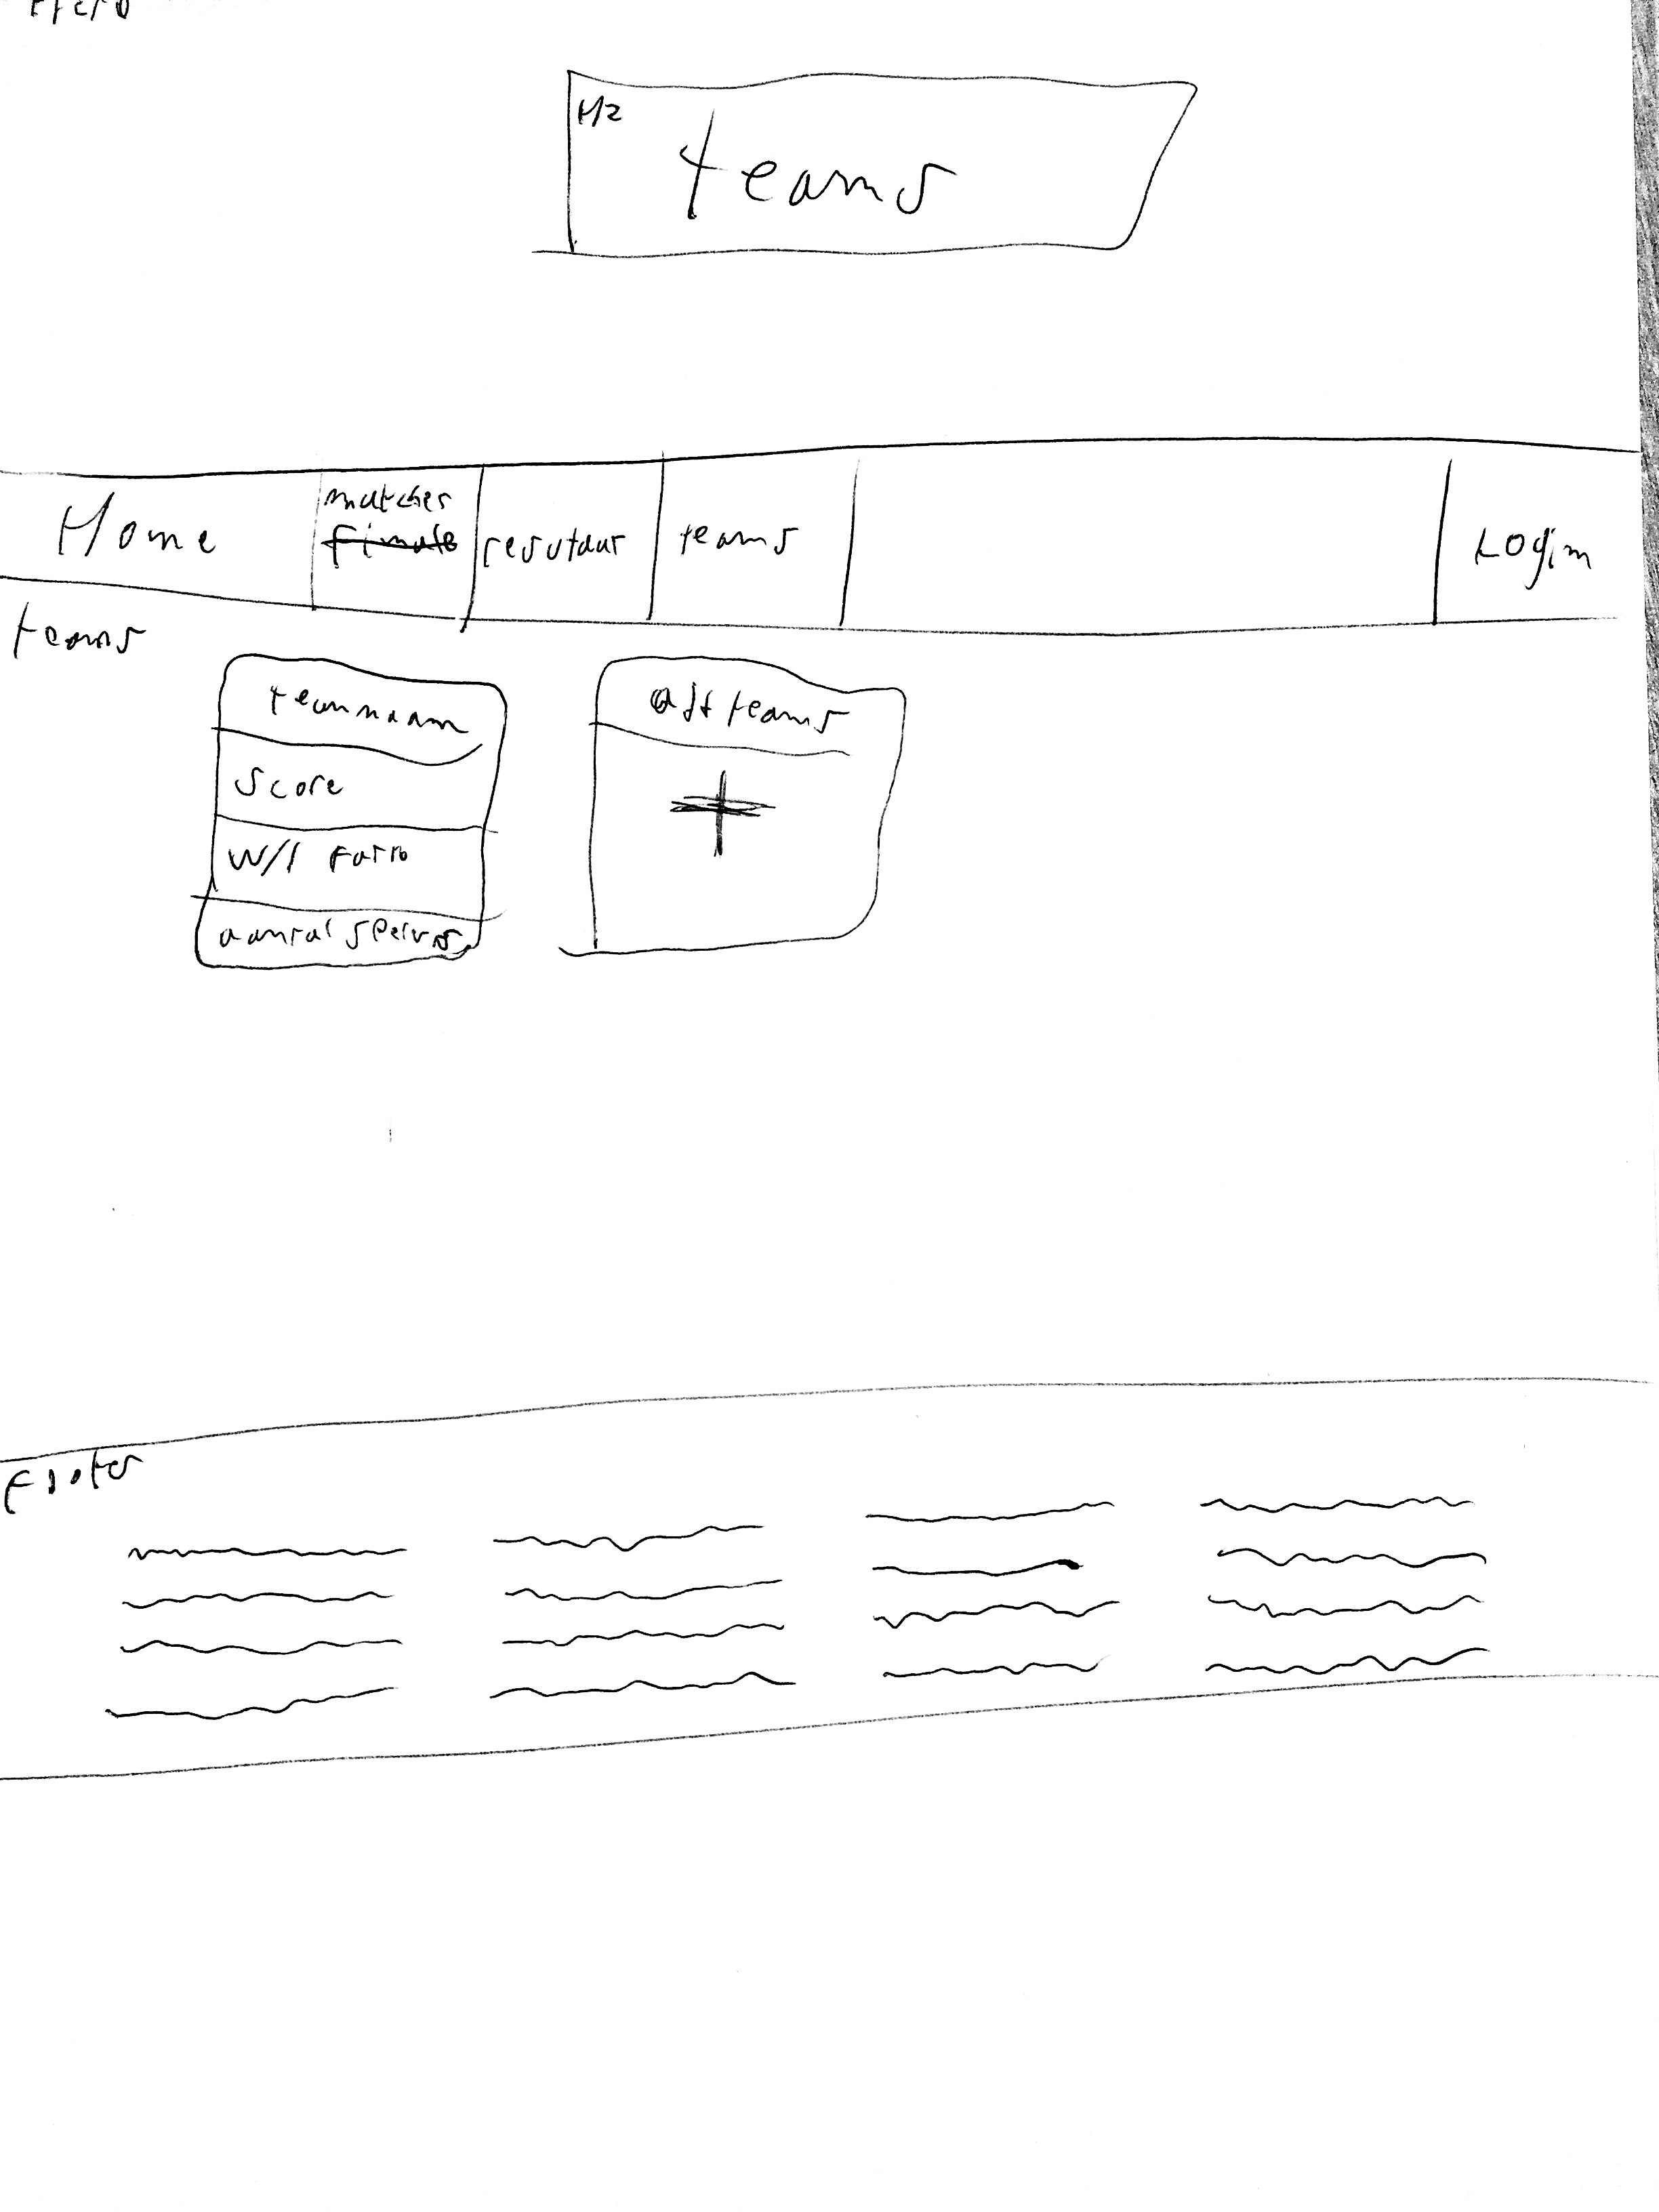 Hero
H2
teams
Home
matches
finale
resutaat
teams
Login
teams
teamnaam
Score
W/l ratio
aantal spelers
add teams
+
Footer